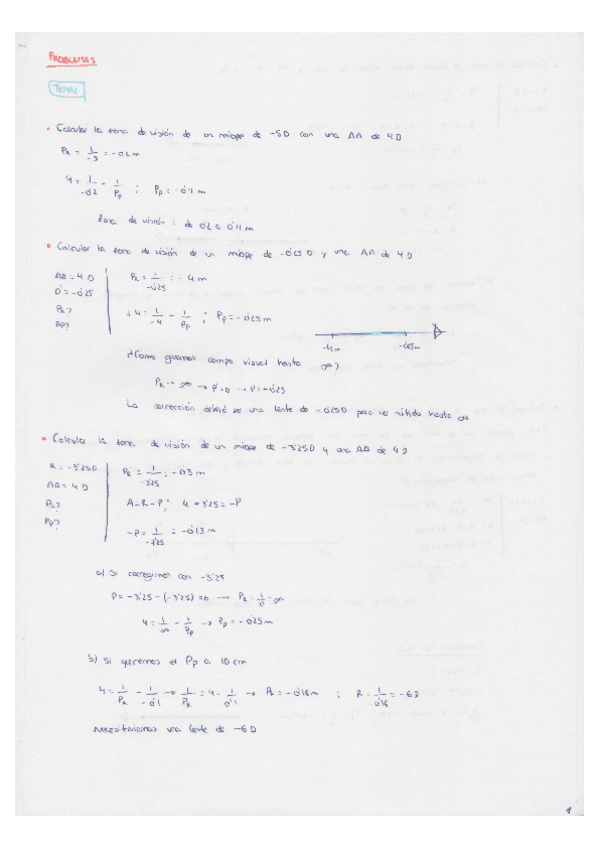 PROBLEMAS
TEMA 1
• Calcular la zona de visión de un miope de -5D con una AA de 4D
PR = 1/-5 = -0'2 m
4 = 1/-0'2 - 1/Pp ; Pp = -0'11 m
Zona de visión : de 0'2 a 0'11 m
• Calcular la zona de visión de un miope de -0'25 D y una AA de 4D
AA = 4 D
D = -0'25
PR?
PP?
PR = 1/-0'25 = -4 m
4 = 1/-4 - 1/Pp ; Pp = -0'25 m
-4m -0'25m
¿Como queremos campo visual hasta ∞?
PR → ∞ → P = 0 → P = +0'25
La corrección deberá ser una lente de -0'25D para ver nítido hasta ∞
• Calcular la zona de visión de un miope de -3'25D y una AA de 4D
R = -3'25D
AA = 4 D
PR?
PP?
PR = 1/-3'25 = -0'3 m
A = R - P ; 4 + 3'25 = -P
-P = 1/-7'25 = -0'13 m
a) Si corregimos con -3'25
P = -3'25 - (-3'25) = 0 → PR = 1/0 = ∞
4 = 1/∞ - 1/Pp → Pp = -0'25 m
b) Si queremos el Pp a 10 cm
4 = 1/PR - 1/-0'1 → 1/PR = 4 - 1/0'1 → PR = -0'16 m ; R = 1/-0'16 = -6 D
Necesitaríamos una lente de -6 D
1